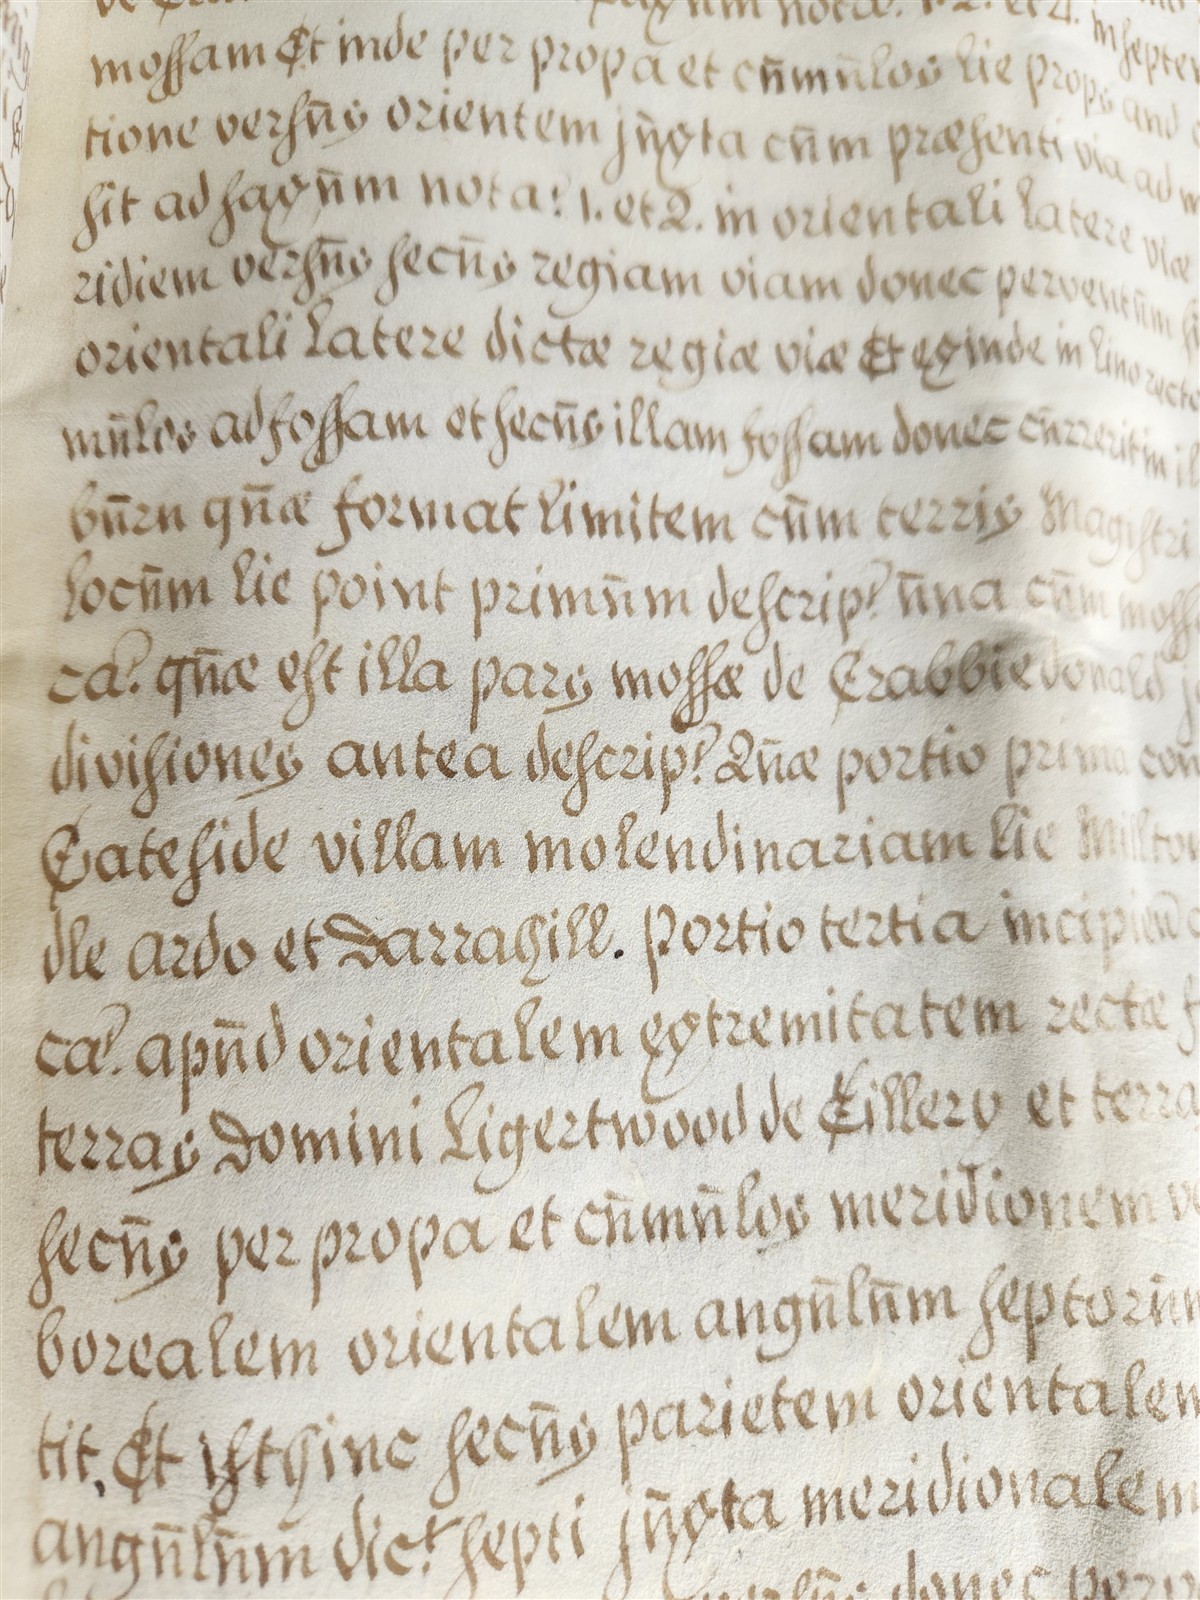 notæ. 1. 2. et 4. in septen
mossam Et inde per propa et cumulos lie props and
tione versus orientem juxta cum præsenti via ad m
sit ad saxum nota? 1. et 2. in orientali latere viæ
ridiem versus secus regiam viam donec perventum
orientali latere dictæ regiæ viæ Et exinde in lino recto
mulos ad fossam et secus illam fossam donec curreritin il
burn quæ format limitem cum terris Magistri
locum lie point primum descrip? una cum moss
ca? quæ est illa pars mossæ de Crabbiedonald
divisiones antea descrip? Quæ portio prima con
Cateside villam molendinariam lie Miltou
dle ardo et Darrahill. portio tertia incipien
ca? apud orientalem extremitatem rectæ f
terras Domini Ligertwood de Tillery et terra
secus per propa et cumulos meridionem v
borealem orientalem angulum septorum
tit, Et isthinc secus parietem orientalem
angulum dict septi juxta meridionalem
versus donec perv